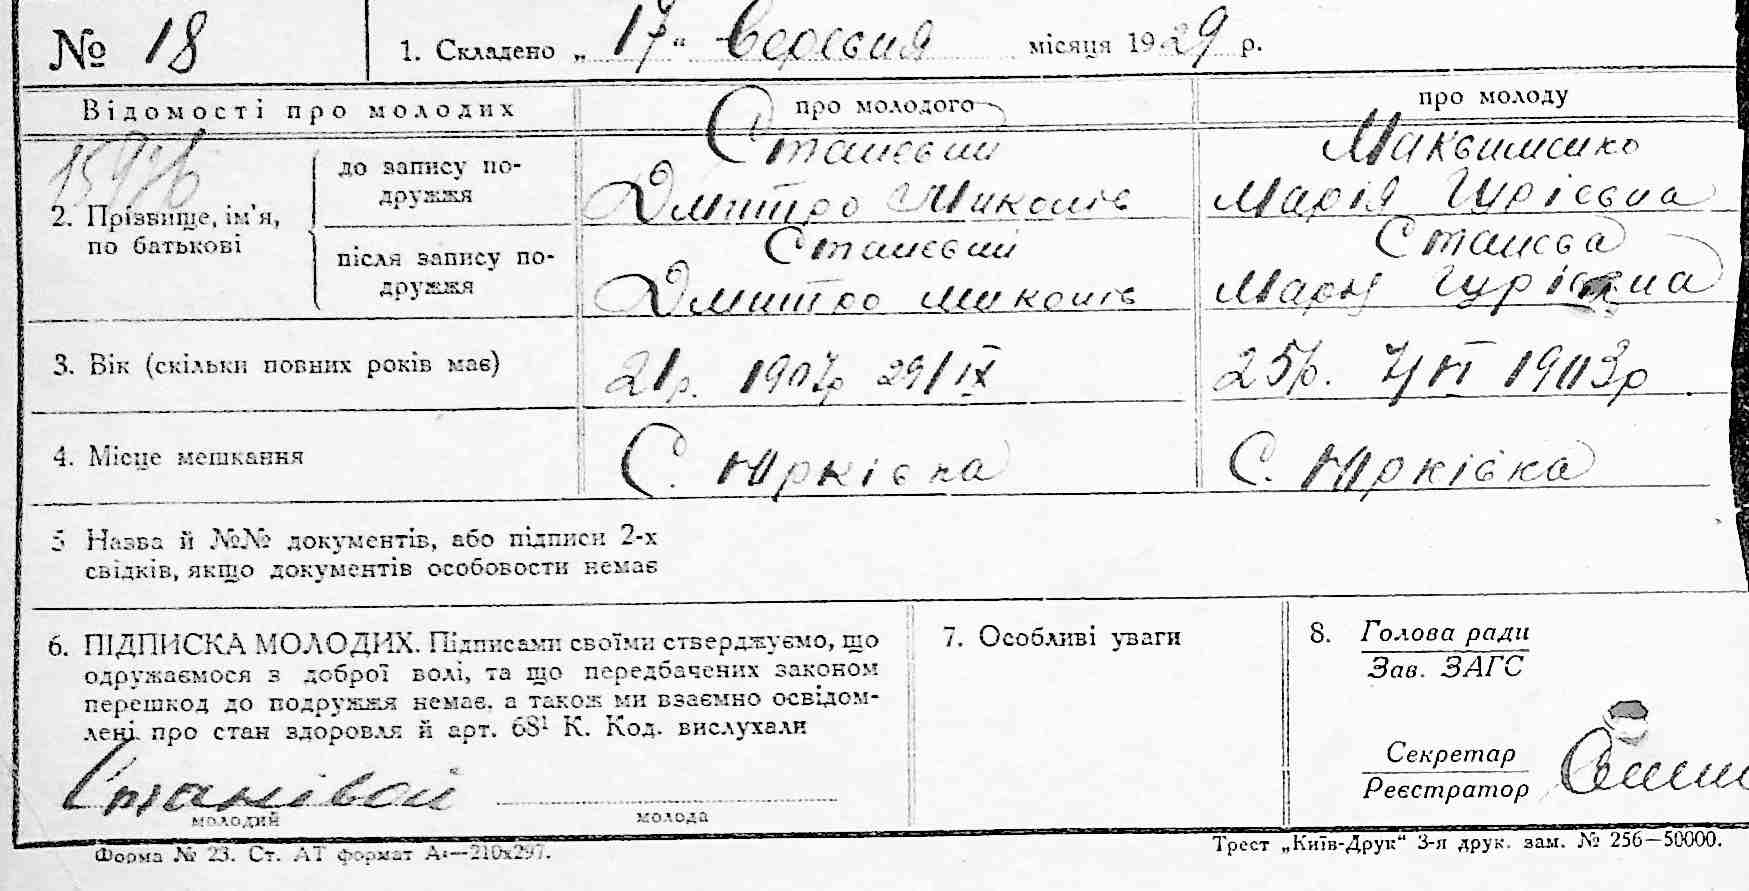 № 18
1. Складено „17“ вересня місяця 1929 р.
Відомості про молодих
про молодого
про молоду
2. Прізвище, ім'я, по батькові
до запису по-
дружжя
Станєвий
Дмитро Миколів
Максименко
Марія Гурієвна
після запису по-
дружжя
Станєвий
Дмитро Миколів
Станєва
Марія Гурієвна
3. Вік (скільки повних років має)
21 р. 1907р 29/IX
25р. 1903р
4. Місце мешкання
С. Юрківка
С. Юрківка
5 Назва й №№ документів, або підписи 2-х
свідків, якщо документів особовости немає
6. ПІДПИСКА МОЛОДИХ. Підписами своїми стверджуємо, що
одружаємося з доброї волі, та що передбачених законом
перешкод до подружжя немає, а також ми взаємно освідом-
лені про стан здоровля й арт. 68¹ К. Код. вислухали
Станівой
молодий
молода
7. Особливі уваги
8. Голова ради
Зав. ЗАГС
Секретар
Реєстратор
Форма № 23. Ст. АТ формат А₄—210х297.
Трест „Київ-Друк“ 3-я друк. зам. № 256—50000.